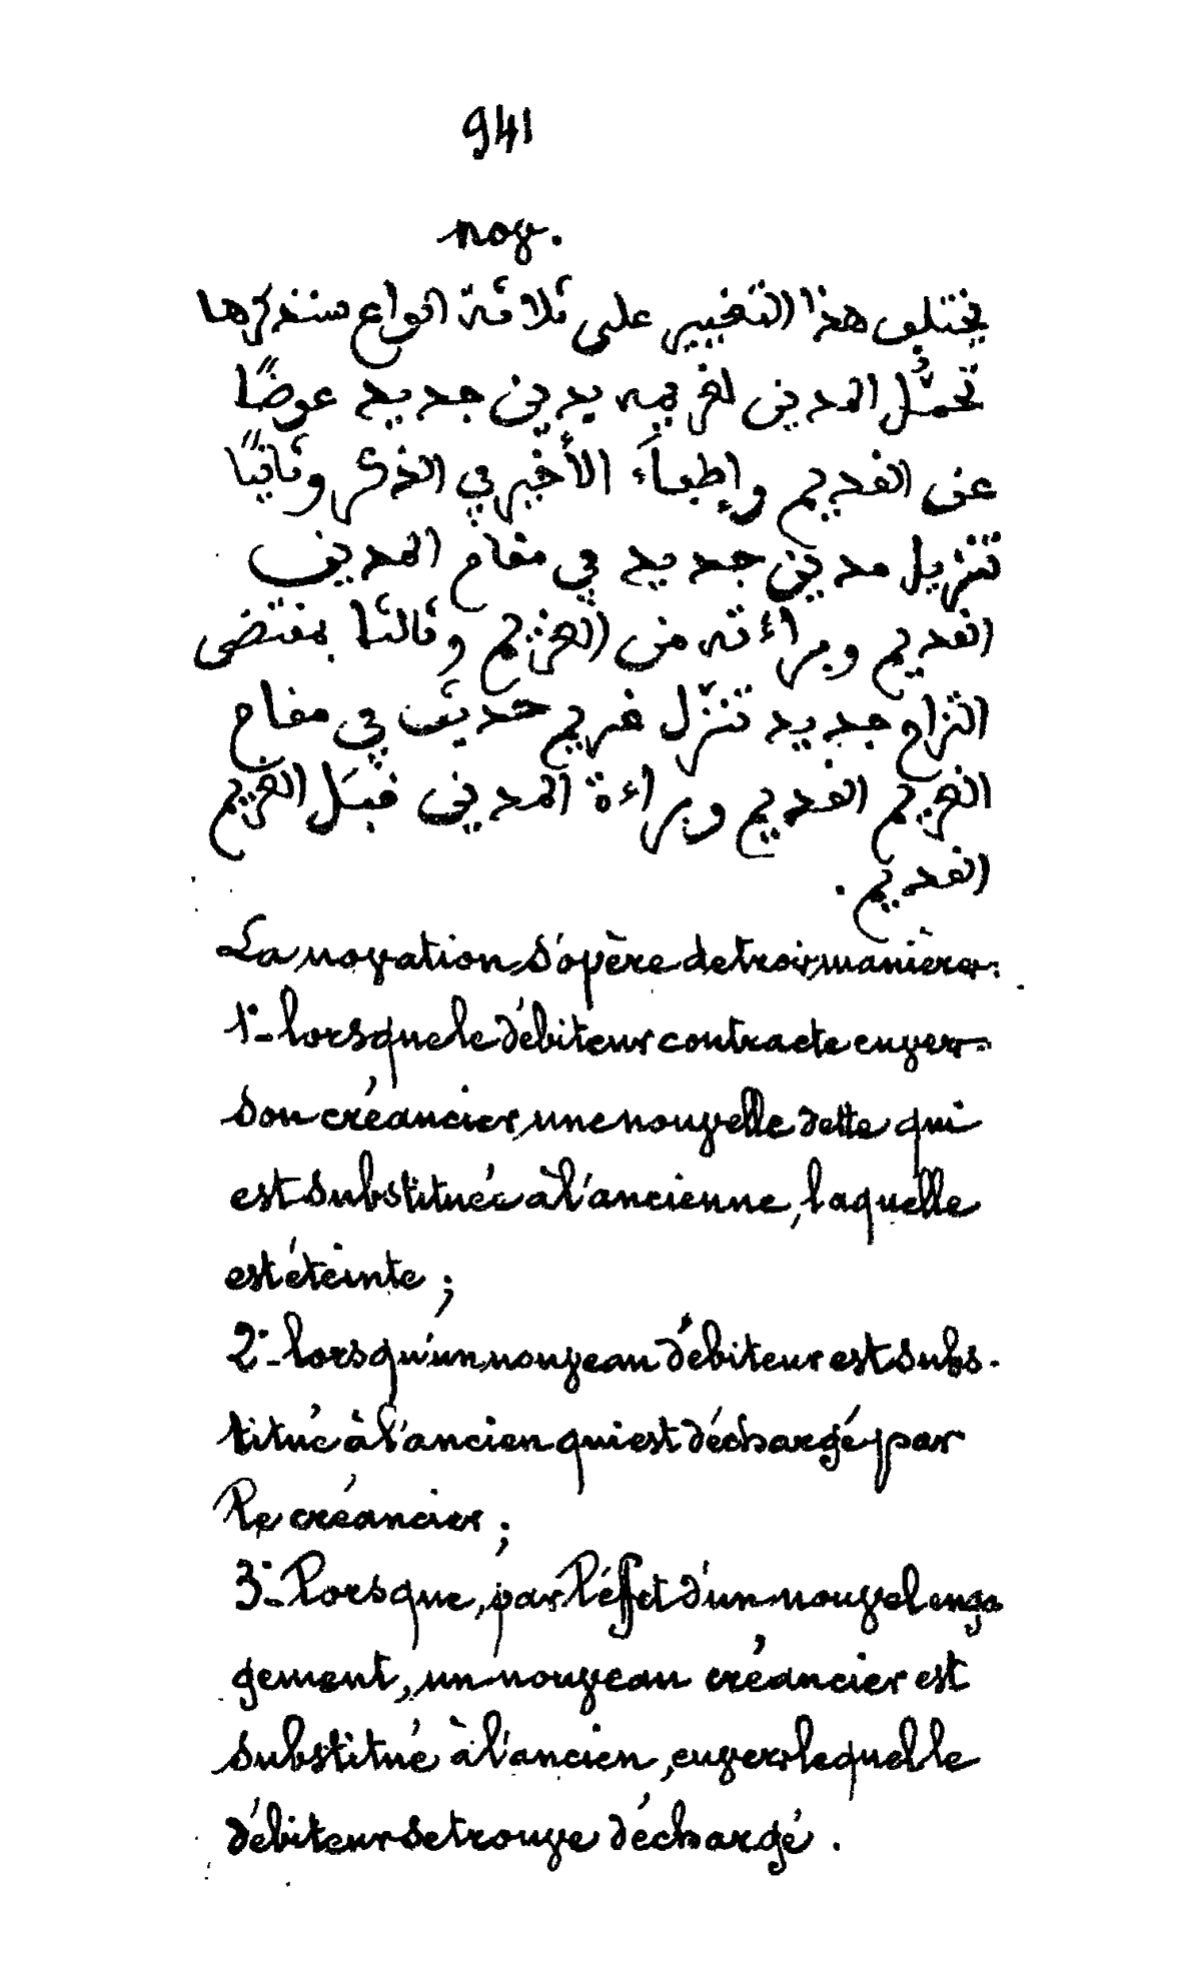 941
nov.
يختلف هذا التغيير على ثلاثة انواع سنذكرها
تحمُّل المدين لغريمه بدين جديد عوضًا
عن القديم وإطفاَء الأخير في الذكر وثانيًا
تنزيل مدين جديد في مقام المدين
القديم وبراءته من الغريم وثالثا بمقتضى
التزام جديد تنزّل غريم حديث في مقام
الغريم القديم وبراءة المدين قبَل الغريم
القديم.
La novation s'opère de trois manières:
1°- lorsque le débiteur contracte envers
son créancier une nouvelle dette qui
est substituée à l'ancienne, laquelle
est éteinte;
2°- lorsqu'un nouveau débiteur est subs-
titué à l'ancien qui est déchargé par
le créancier;
3°- Lorsque, par l'éffet d'un nouvel enga
gement, un nouveau créancier est
substitué à l'ancien, envers lequel le
débiteur se trouve déchargé.